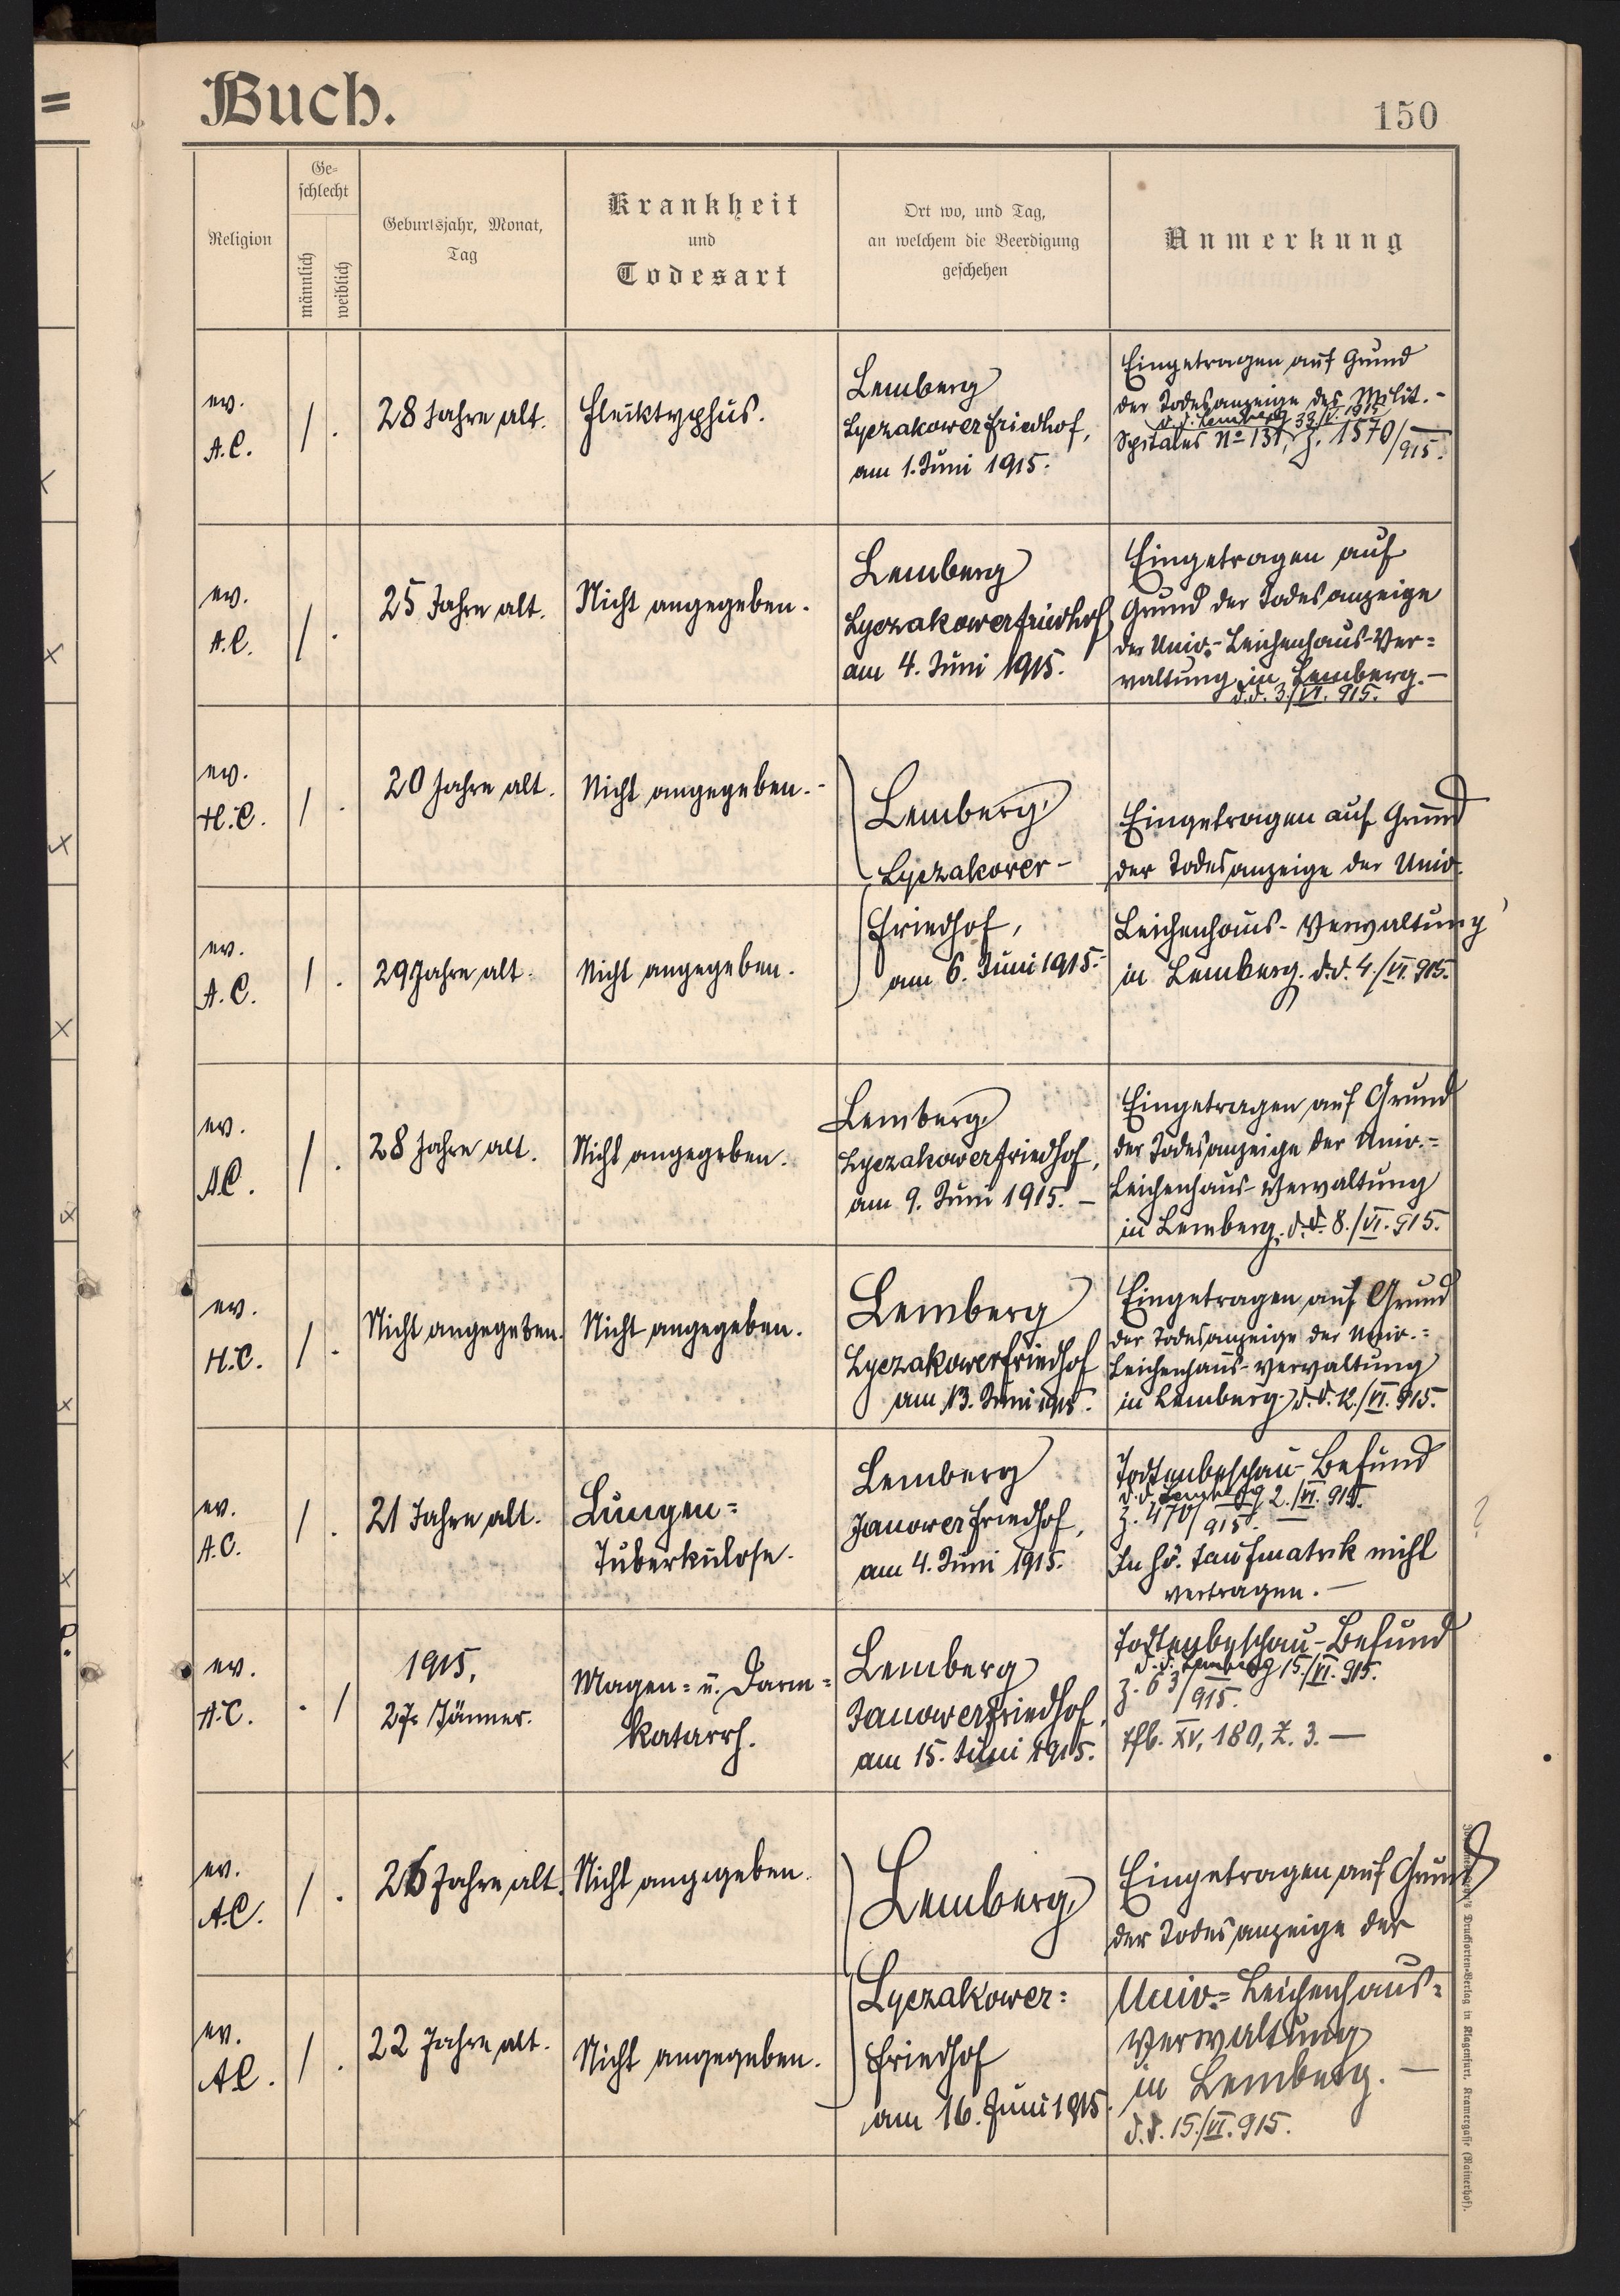 Buch.
150
Religion
Ge=
schlecht
männlich
weiblich
Geburtsjahr, Monat,
Tag
Krankheit
und
Todesart
Ort wo, und Tag,
an welchem die Beerdigung
geschehen
Anmerkung
ev.
A.C.
1
.
28 Jahre alt.
Flecktyphus.
Lemberg
Lyczakower Friedhof,
am 1. Juni 1915.
Eingetragen auf Grund
der Todesanzeige des Milit.-
d.d. Lemberg
Spitales No 131, Z. 1570/915.
ev.
A.C.
1
.
25 Jahre alt.
Nicht angegeben.
Lemberg
Lyczakower Friedhof
am 4. Juni 1915.
Eingetragen auf
Grund der Todesanzeige
der Univ.-Leichenhaus-Ver=
waltung in Lemberg.—
d.d. 3./VI. 915.
ev.
H.C.
1
.
20 Jahre alt.
Nicht angegeben.-
Lemberg
Lyczakower-
Eingetragen auf Grund
der Todesanzeige der Univ.
ev.
A.C.
1
.
29 Jahre alt.
Nicht angegeben.
Friedhof,
am 6. Juni 1915.-
Leichenhaus-Verwaltung
in Lemberg. d.d. 4./VI. 915.
ev.
A.C.
1
.
28 Jahre alt.
Nicht angegeben.
Lemberg
Lyczakower Friedhof,
am 9. Juni 1915. —
Eingetragen auf Grund
der Todesanzeige der Univ.=
Leichenhaus-Verwaltung
in Lemberg. d.d. 8./VI. 915.
ev.
H.C.
1
.
Nicht angegeben.
Nicht angegeben.
Lemberg
Lyczakower Friedhof
am 13. Juni 1915.
Eingetragen auf Grund
der Todesanzeige der Univ.=
Leichenhaus-Verwaltung
in Lemberg d.d. 12./VI. 915.
ev.
A.C.
1
.
21 Jahre alt.
Lungen=
Tuberkulose.
Lemberg
Janower Friedhof,
am 4. Juni 1915.
Todtenbeschau-Befund
d.d. Lemberg 2./VI. 915.
Z. 470/915. —
In hö. Taufmatrik nicht
vertragen. —
?
ev.
A.C.
.
1
1915,
27. Jänner.
Magen= u. Darm=
Katarrh.
Lemberg
Janower Friedhof,
am 15. Juni 1915.
Todtenbeschau-Befund
d.d. Lemberg 15./VI. 915.
Z. 63/915.
Tfb. XV, 180, Z. 3. —
ev.
A.C.
1
.
26 Jahre alt.
Nicht angegeben.
Lemberg
Eingetragen auf Grund
der Todesanzeige der
ev.
A.C.
1
.
22 Jahre alt.
Nicht angegeben.
Lyczakower=
Friedhof
am 16. Juni 1915.
Univ.= Leichenhaus=
Verwaltung
in Lemberg. —
d.d. 15./VI. 915.
Drucksorten-Verlag in Klagenfurt, Kramergasse (Rainerhof).